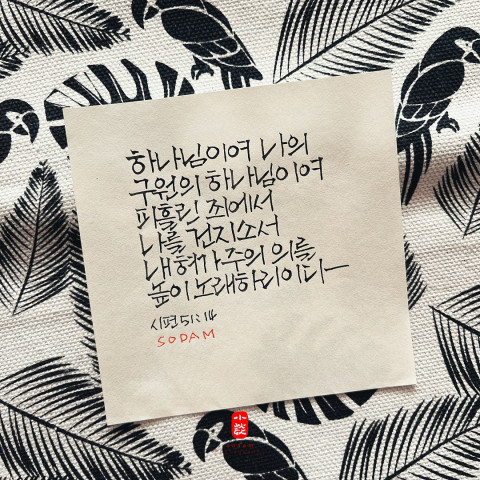 하나님이여 나의
구원의 하나님이여
피흘린 죄에서
나를 건지소서
내 혀가 주의 의를
높이 노래하리이다
시편 51:14
SODAM